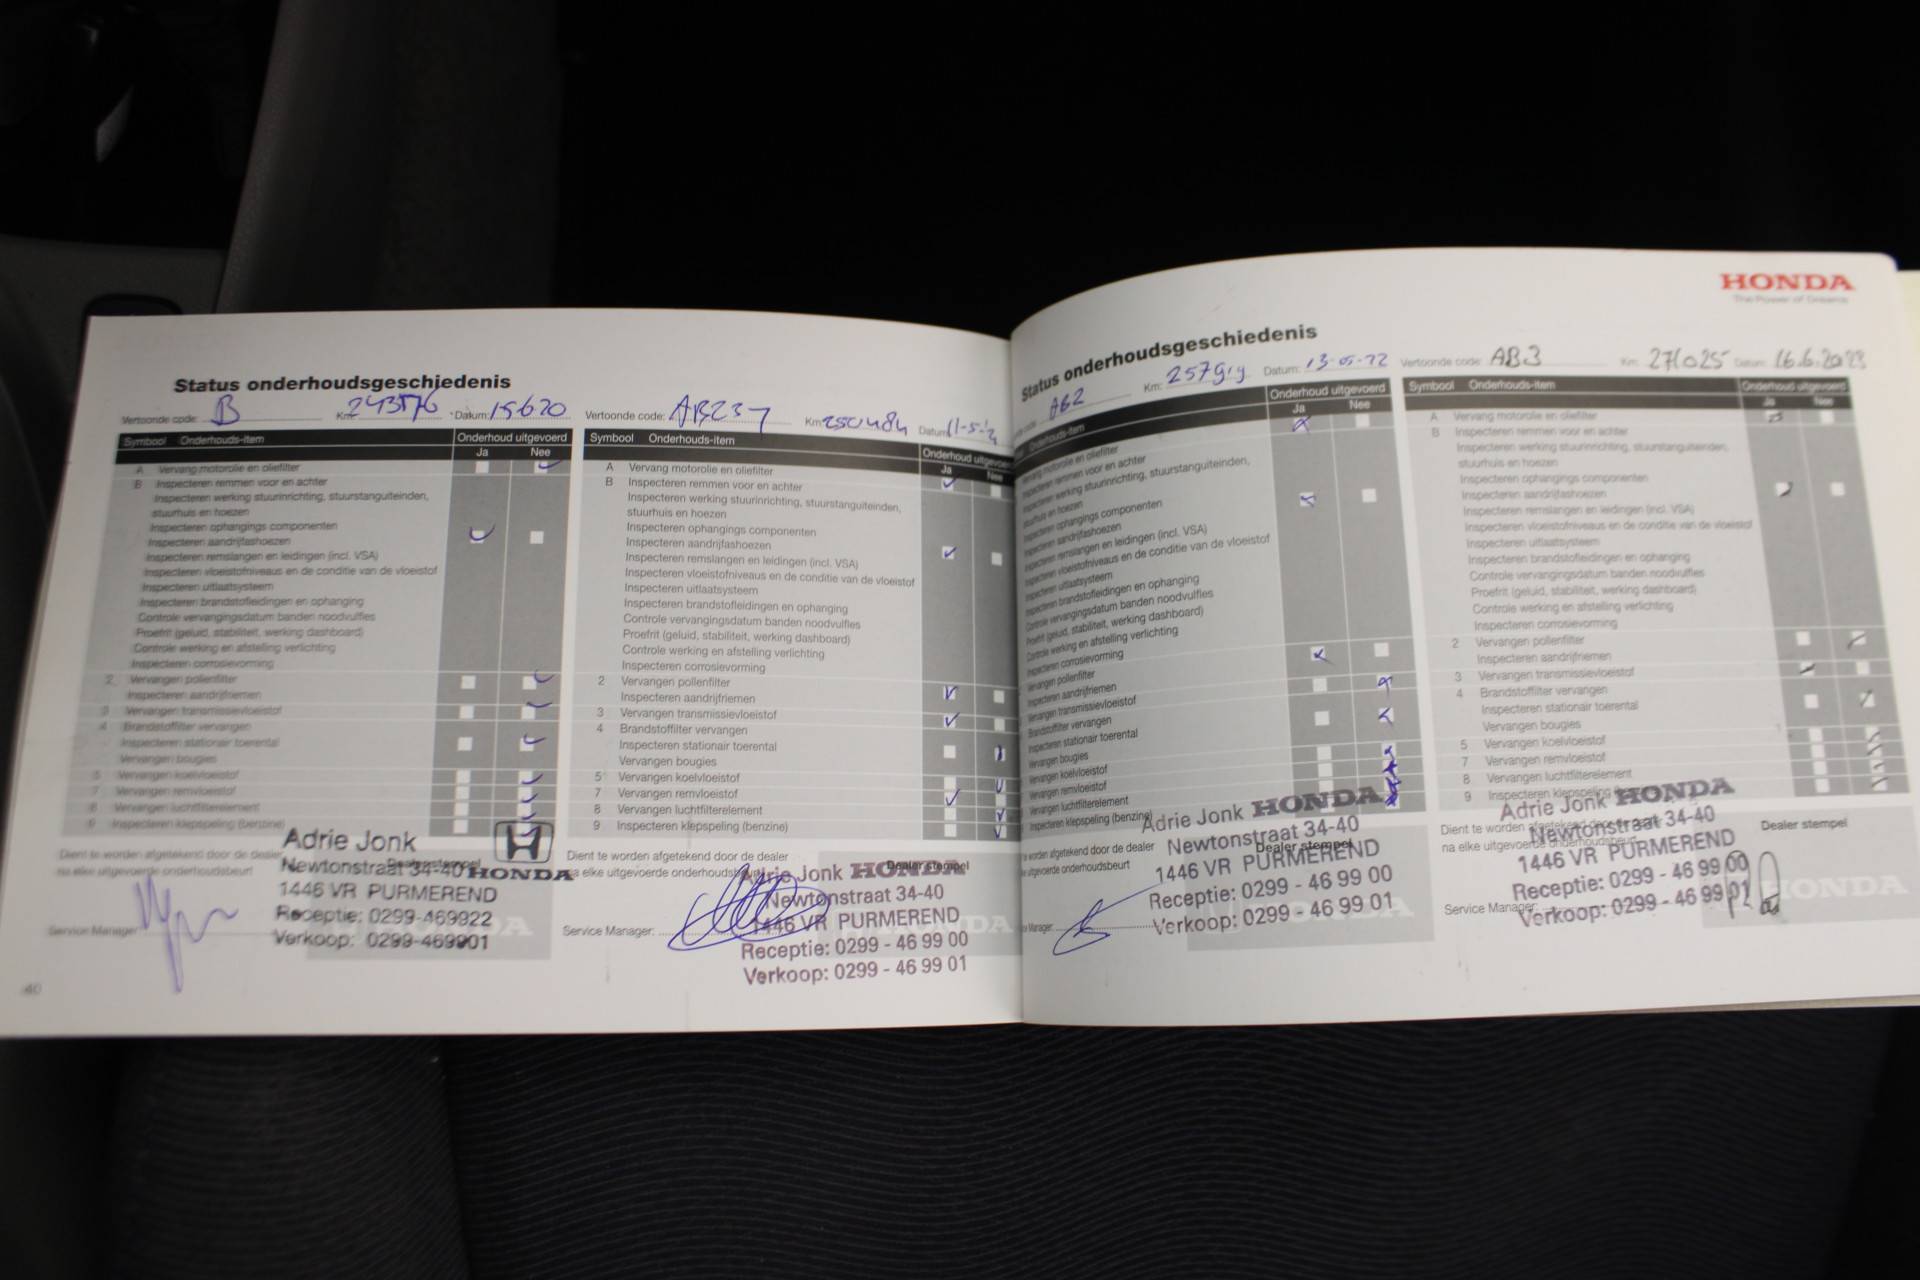 Status onderhoudsgeschiedenis
Vertoonde code: B Km: 243576 Datum: 15620
Symbool Onderhouds-item Onderhoud uitgevoerd
Ja Nee
A Vervang motorolie en oliefilter
B Inspecteren remmen voor en achter
Inspecteren werking stuurinrichting, stuurstanguiteinden,
stuurhuis en hoezen
Inspecteren ophangings componenten
Inspecteren aandrijfashoezen
Inspecteren remslangen en leidingen (incl. VSA)
Inspecteren vloeistofniveaus en de conditie van de vloeistof
Inspecteren uitlaatsysteem
Inspecteren brandstofleidingen en ophanging
Controle vervangingsdatum banden noodvulfles
Proefrit (geluid, stabiliteit, werking dashboard)
Controle werking en afstelling verlichting
Inspecteren corrosievorming
2 Vervangen pollenfilter
Inspecteren aandrijfriemen
3 Vervangen transmissievloeistof
4 Brandstoffilter vervangen
Inspecteren stationair toerental
Vervangen bougies
5 Vervangen koelvloeistof
7 Vervangen remvloeistof
8 Vervangen luchtfilterelement
9 Inspecteren klepspeling (benzine)
Dient te worden afgetekend door de dealer
na elke uitgevoerde onderhoudsbeurt
Dealer stempel
Adrie Jonk
Newtonstraat 34-40 HONDA
1446 VR PURMEREND
Receptie: 0299-469922
Verkoop: 0299-469901
Service Manager
40
Vertoonde code: AB237 Km: 250484 Datum: 11-5-'2
Symbool Onderhouds-item Onderhoud uitgevoerd
Ja Nee
A Vervang motorolie en oliefilter
B Inspecteren remmen voor en achter
Inspecteren werking stuurinrichting, stuurstanguiteinden,
stuurhuis en hoezen
Inspecteren ophangings componenten
Inspecteren aandrijfashoezen
Inspecteren remslangen en leidingen (incl. VSA)
Inspecteren vloeistofniveaus en de conditie van de vloeistof
Inspecteren uitlaatsysteem
Inspecteren brandstofleidingen en ophanging
Controle vervangingsdatum banden noodvulfles
Proefrit (geluid, stabiliteit, werking dashboard)
Controle werking en afstelling verlichting
Inspecteren corrosievorming
2 Vervangen pollenfilter
Inspecteren aandrijfriemen
3 Vervangen transmissievloeistof
4 Brandstoffilter vervangen
Inspecteren stationair toerental
Vervangen bougies
5 Vervangen koelvloeistof
7 Vervangen remvloeistof
8 Vervangen luchtfilterelement
9 Inspecteren klepspeling (benzine)
Dient te worden afgetekend door de dealer
na elke uitgevoerde
Dealer stempel
Adrie Jonk HONDA
Newtonstraat 34-40
1446 VR PURMEREND
Receptie: 0299 - 46 99 00
Verkoop: 0299 - 46 99 01
Service Manager:
HONDA
The Power of Dreams
Status onderhoudsgeschiedenis
code: Km: Datum: 13-05-22
Onderhouds-item Onderhoud uitgevoerd
Ja Nee
Vervang motorolie en oliefilter
Inspecteren remmen voor en achter
Inspecteren werking stuurinrichting, stuurstanguiteinden,
stuurhuis en hoezen
Inspecteren ophangings componenten
Inspecteren aandrijfashoezen
Inspecteren remslangen en leidingen (incl. VSA)
Inspecteren vloeistofniveaus en de conditie van de vloeistof
Inspecteren uitlaatsysteem
Inspecteren brandstofleidingen en ophanging
Controle vervangingsdatum banden noodvulfles
Proefrit (geluid, stabiliteit, werking dashboard)
Controle werking en afstelling verlichting
Inspecteren corrosievorming
Vervangen pollenfilter
Inspecteren aandrijfriemen
Vervangen transmissievloeistof
Brandstoffilter vervangen
Inspecteren stationair toerental
Vervangen bougies
Vervangen koelvloeistof
Vervangen remvloeistof
Vervangen luchtfilterelement
Inspecteren klepspeling (benzine)
worden afgetekend door de dealer
uitgevoerde onderhoudsbeurt
Dealer stempel
Adrie Jonk HONDA
Newtonstraat 34-40
1446 VR PURMEREND
Receptie: 0299 - 46 99 00
Verkoop: 0299 - 46 99 01
Manager:
Vertoonde code: AB3 Km: 271025 Datum: 16.6.2023
Symbool Onderhouds-item Onderhoud uitgevoerd
Ja Nee
A Vervang motorolie en oliefilter
B Inspecteren remmen voor en achter
Inspecteren werking stuurinrichting, stuurstanguiteinden,
stuurhuis en hoezen
Inspecteren ophangings componenten
Inspecteren aandrijfashoezen
Inspecteren remslangen en leidingen (incl. VSA)
Inspecteren vloeistofniveaus en de conditie van de vloeistof
Inspecteren uitlaatsysteem
Inspecteren brandstofleidingen en ophanging
Controle vervangingsdatum banden noodvulfles
Proefrit (geluid, stabiliteit, werking dashboard)
Controle werking en afstelling verlichting
Inspecteren corrosievorming
2 Vervangen pollenfilter
Inspecteren aandrijfriemen
3 Vervangen transmissievloeistof
4 Brandstoffilter vervangen
Inspecteren stationair toerental
Vervangen bougies
5 Vervangen koelvloeistof
7 Vervangen remvloeistof
8 Vervangen luchtfilterelement
9 Inspecteren klepspeling
Dient te worden afgetekend door
na elke uitgevoerde onderhoudsbeurt
Dealer stempel
Adrie Jonk HONDA
Newtonstraat 34-40
1446 VR PURMEREND
Receptie: 0299 - 46 99 00
Verkoop: 0299 - 46 99 01
Service Manager:
HONDA